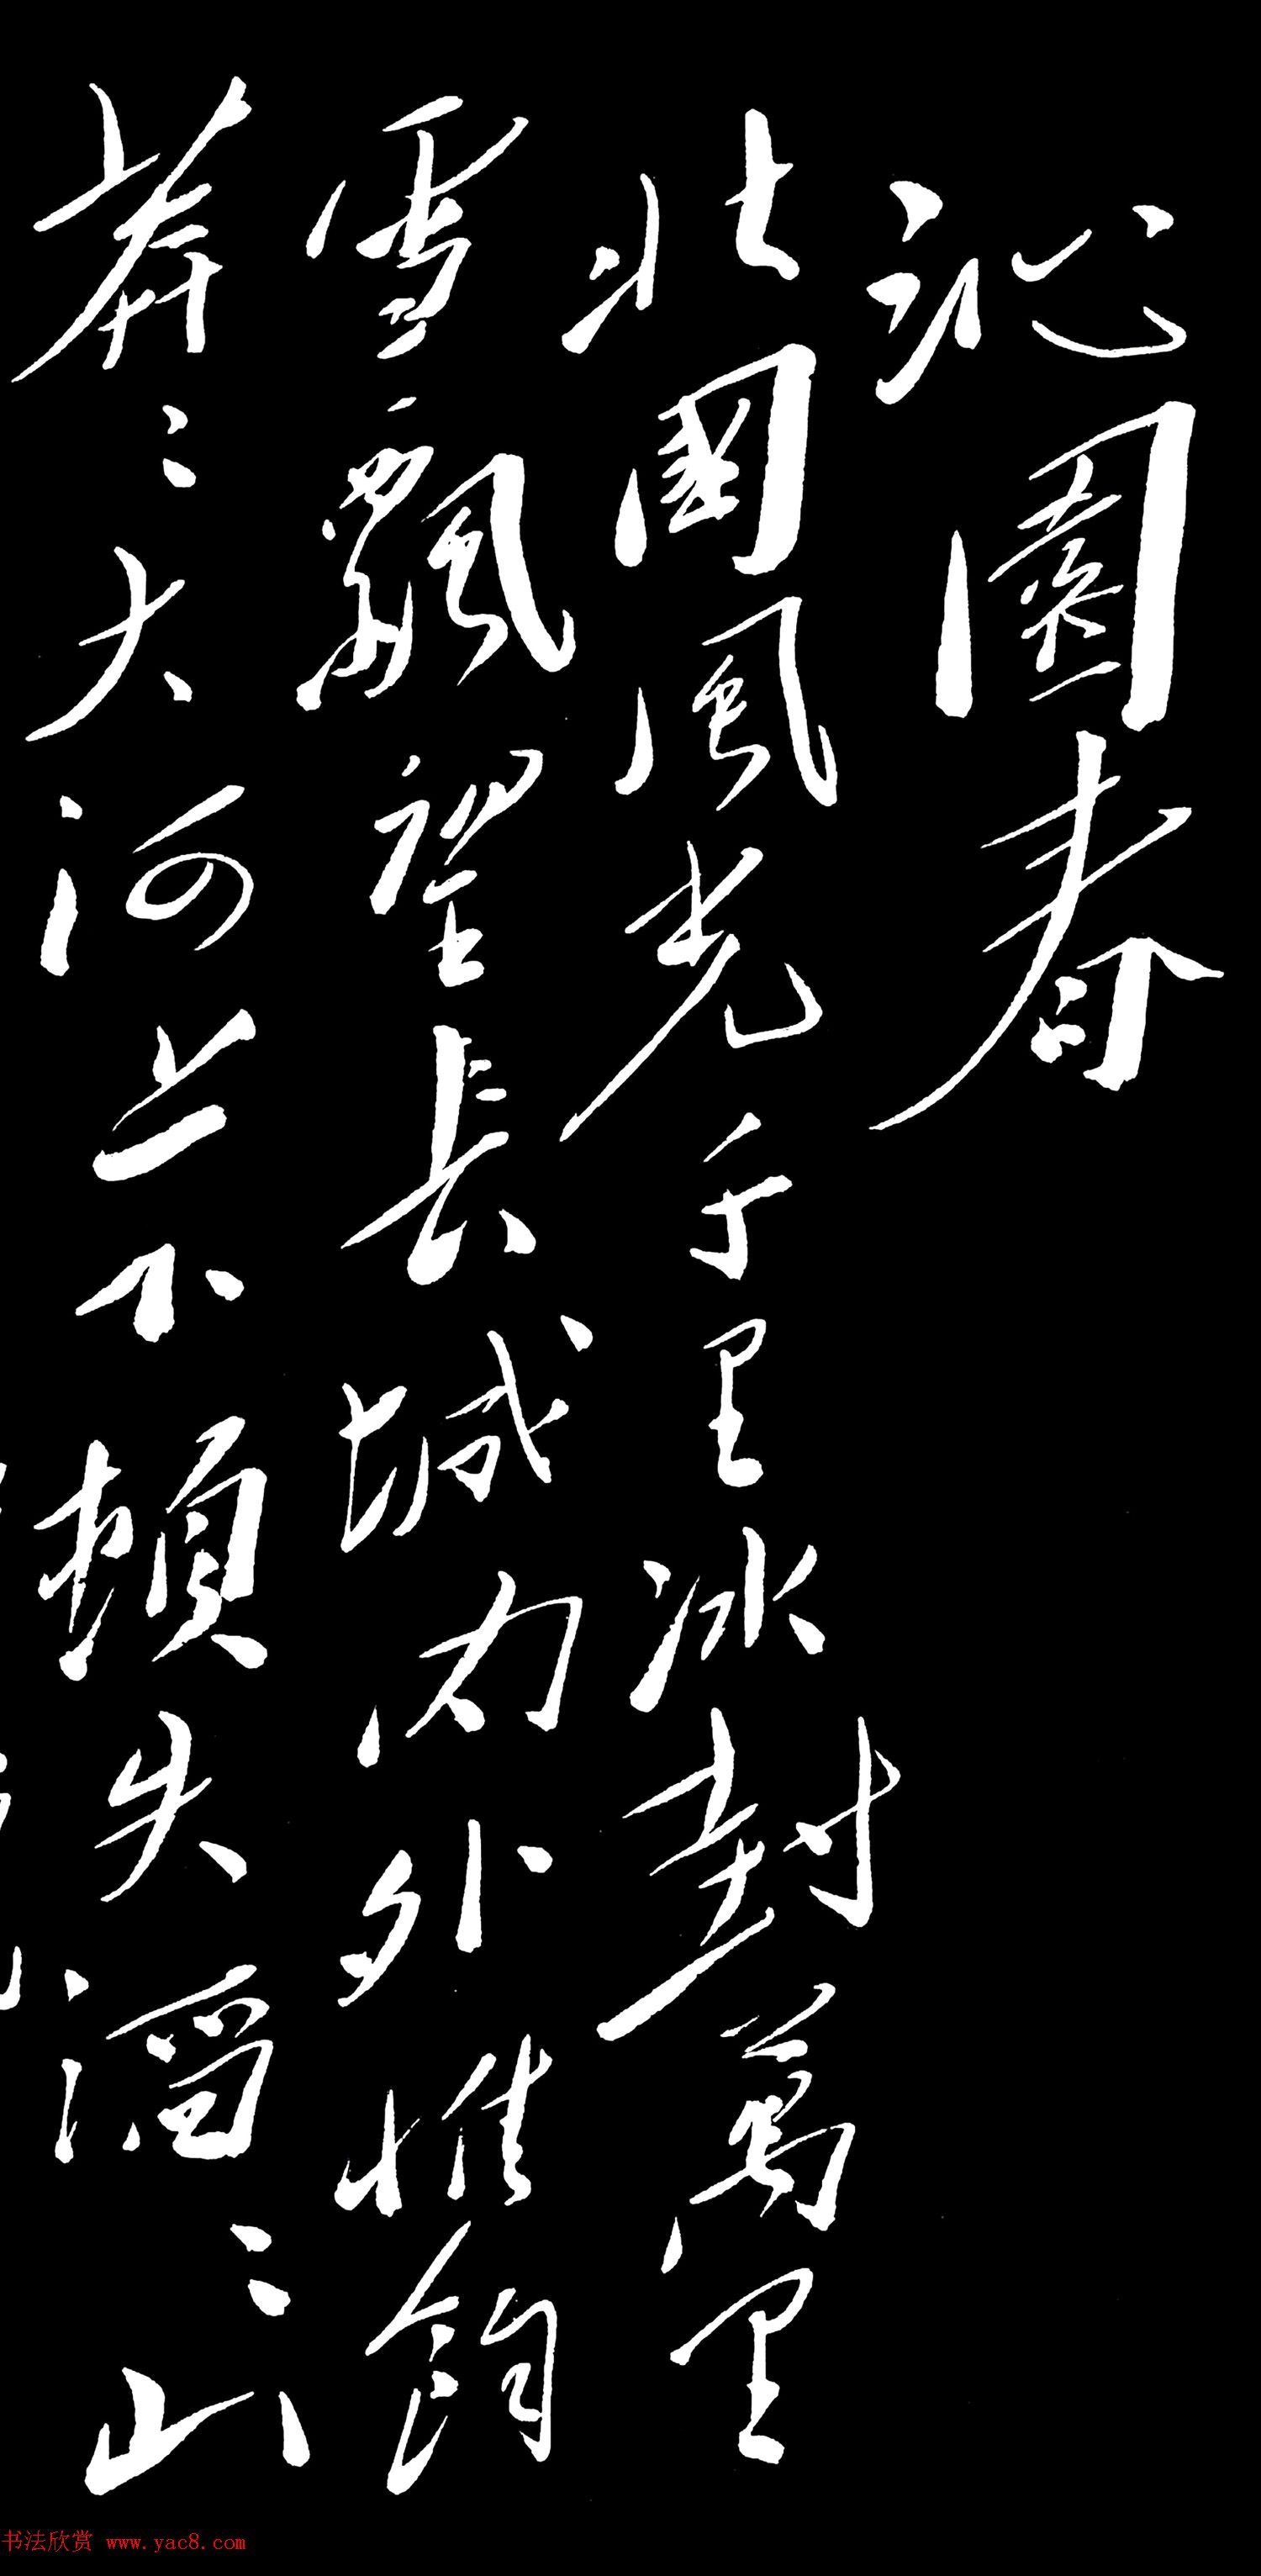 沁園春
北國風光千里冰封萬里
雪飄望長城內外惟餘
莽〻大河上下頓失滔〻山
书法欣赏 www.yac8.com